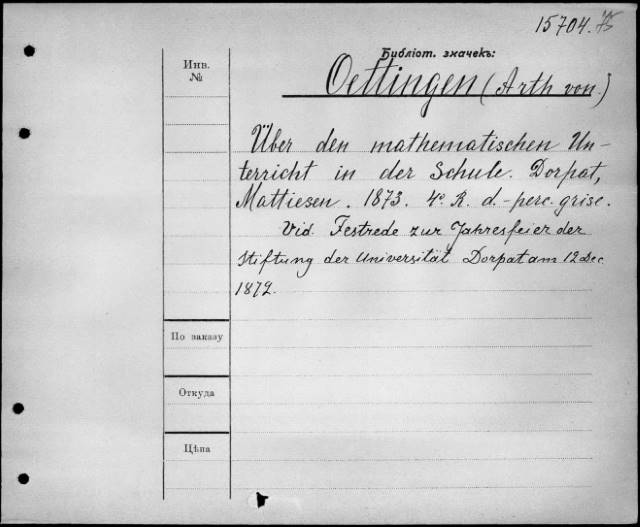 15704.
Библіот. значекъ:
Инв.
№
Oettingen (Arth von.)
Über den mathematischen Un-
terricht in der Schule. Dorpat,
Mattiesen. 1873. 4º R. d.-perc. grise.
Vid. Festrede zur Jahresfeier der
Stiftung der Universität Dorpat am 12 Dec.
1872.
По заказу
Откуда
Цѣна